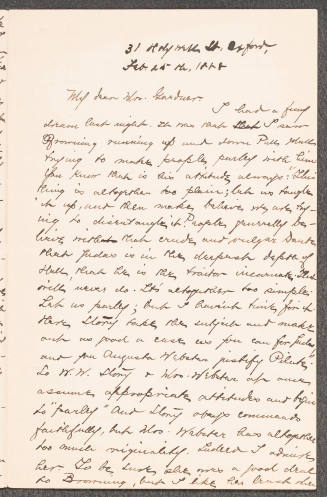 31 Holywell St. Oxford,
Feb 25th, 1888
My dear Mrs. Gardner.
I had a funny
dream last night. It was that I saw
Browning running up and down Pall Mall
trying to make people parley with him
You know that is his attitude always: This
thing is altogether too plain; let us tangle
it up, and then make believe we are try-
ing to disentangle it. People generally be-
lieve with that crude and vulgar Dante
that Judas is in the deepest depth of
Hell, that he is the traitor incarnate. That
will never do. It's altogether too simple.
Let us parley; but I haven't time for it
Here Story take the subject and make
out as good a case as you can for Judas
and you Augusta Webster justify Pilate.
So W. W. Story & Mrs. Webster at once
assume appropriate attitudes and begin
to "parley." And Story obeys commands
faithfully, but Mrs. Webster has altogether
too much originality. Indeed I admire
her. To be sure she owes a good deal
to Browning, but I like her